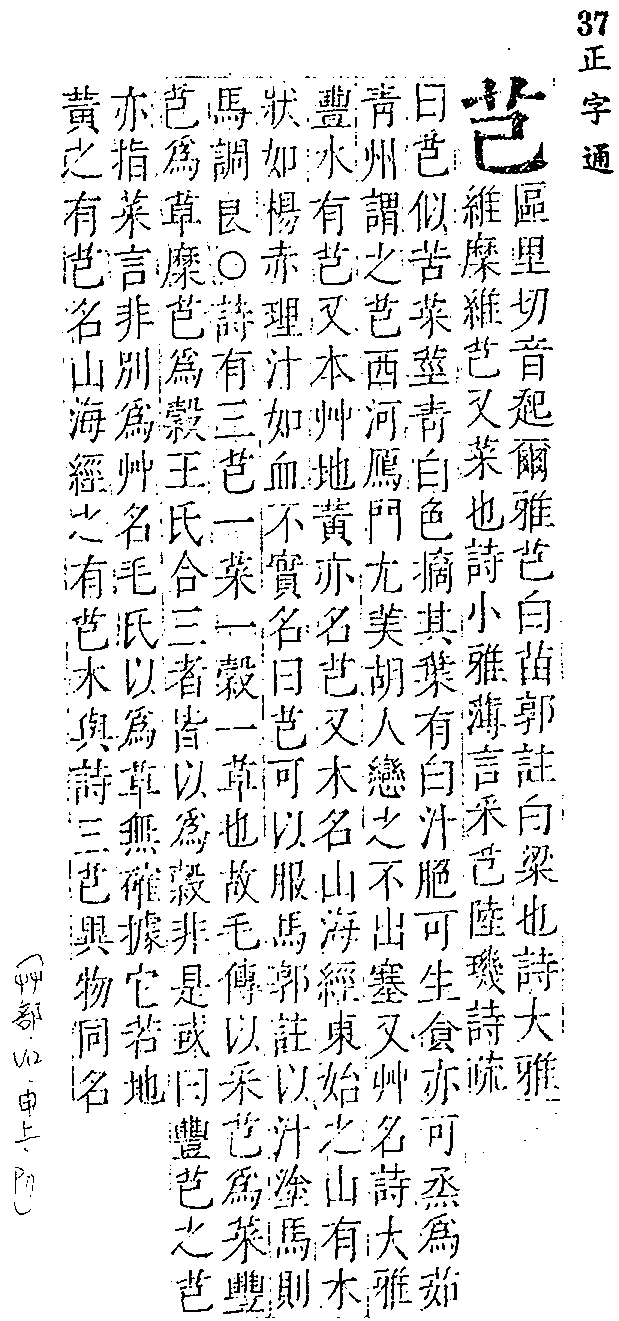 37正字通
芑
區里切音起爾雅芑白苗郭註白梁也詩大雅
維穈維芑又菜也詩小雅薄言采芑陸璣詩疏
曰芑似苦菜莖靑白色摘其葉有白汁脃可生食亦可烝爲茹
靑州謂之芑西河鴈門尤美胡人戀之不出塞又艸名詩大雅
豐水有芑又本艸地黃亦名芑又木名山海經東始之山有木
狀如楊赤理汁如血不實名曰芑可以服馬郭註以汁塗馬則
馬調良○詩有三芑一菜一穀一草也故毛傳以采芑爲菜豐
芑爲草穈芑爲穀王氏合三者皆以爲穀非是或曰豐芑之芑
亦指菜言非別爲艸名毛氏以爲草無確據它若地
黃之有芑名山海經之有芑木與詩三芑異物同名